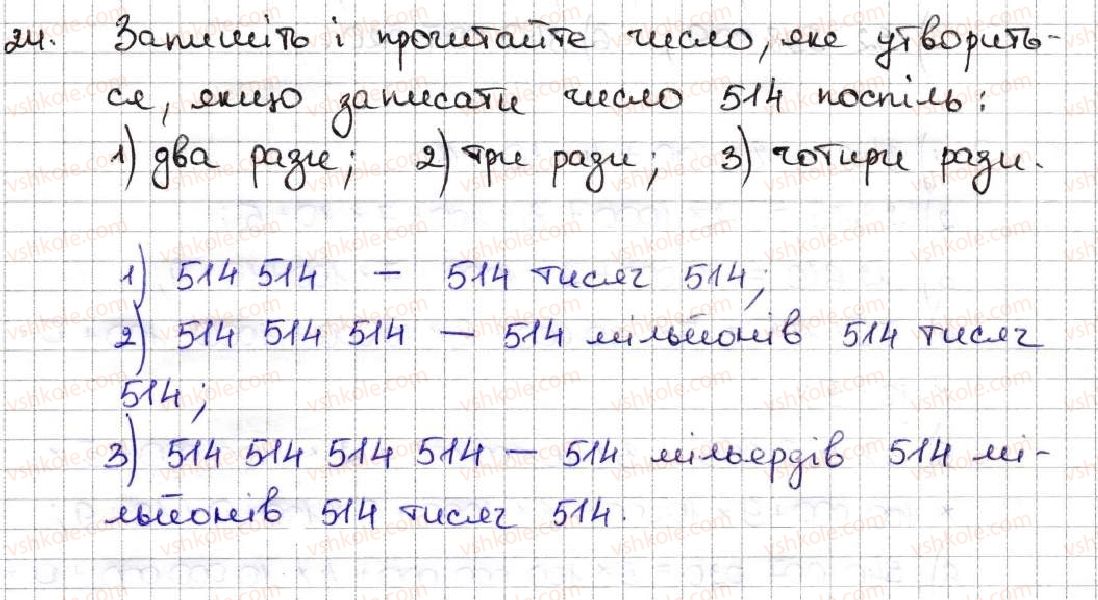 24. Запишіть і прочитайте число, яке утворить-
ся, якщо записати число 514 поспіль:
1) два рази; 2) три рази; 3) чотири рази.
1) 514 514 — 514 тисяч 514;
2) 514 514 514 — 514 мільйонів 514 тисяч
514;
3) 514 514 514 514 — 514 мільярдів 514 мі-
льйонів 514 тисяч 514.